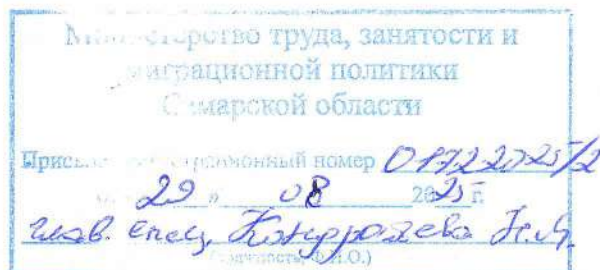 Министерство труда, занятости и
миграционной политики
Самарской области
Присвоен регистрационный номер 01722025/2
« 29 » 08 2025 г.
глав. спец. Кондрашева
(должность, Ф.И.О.)